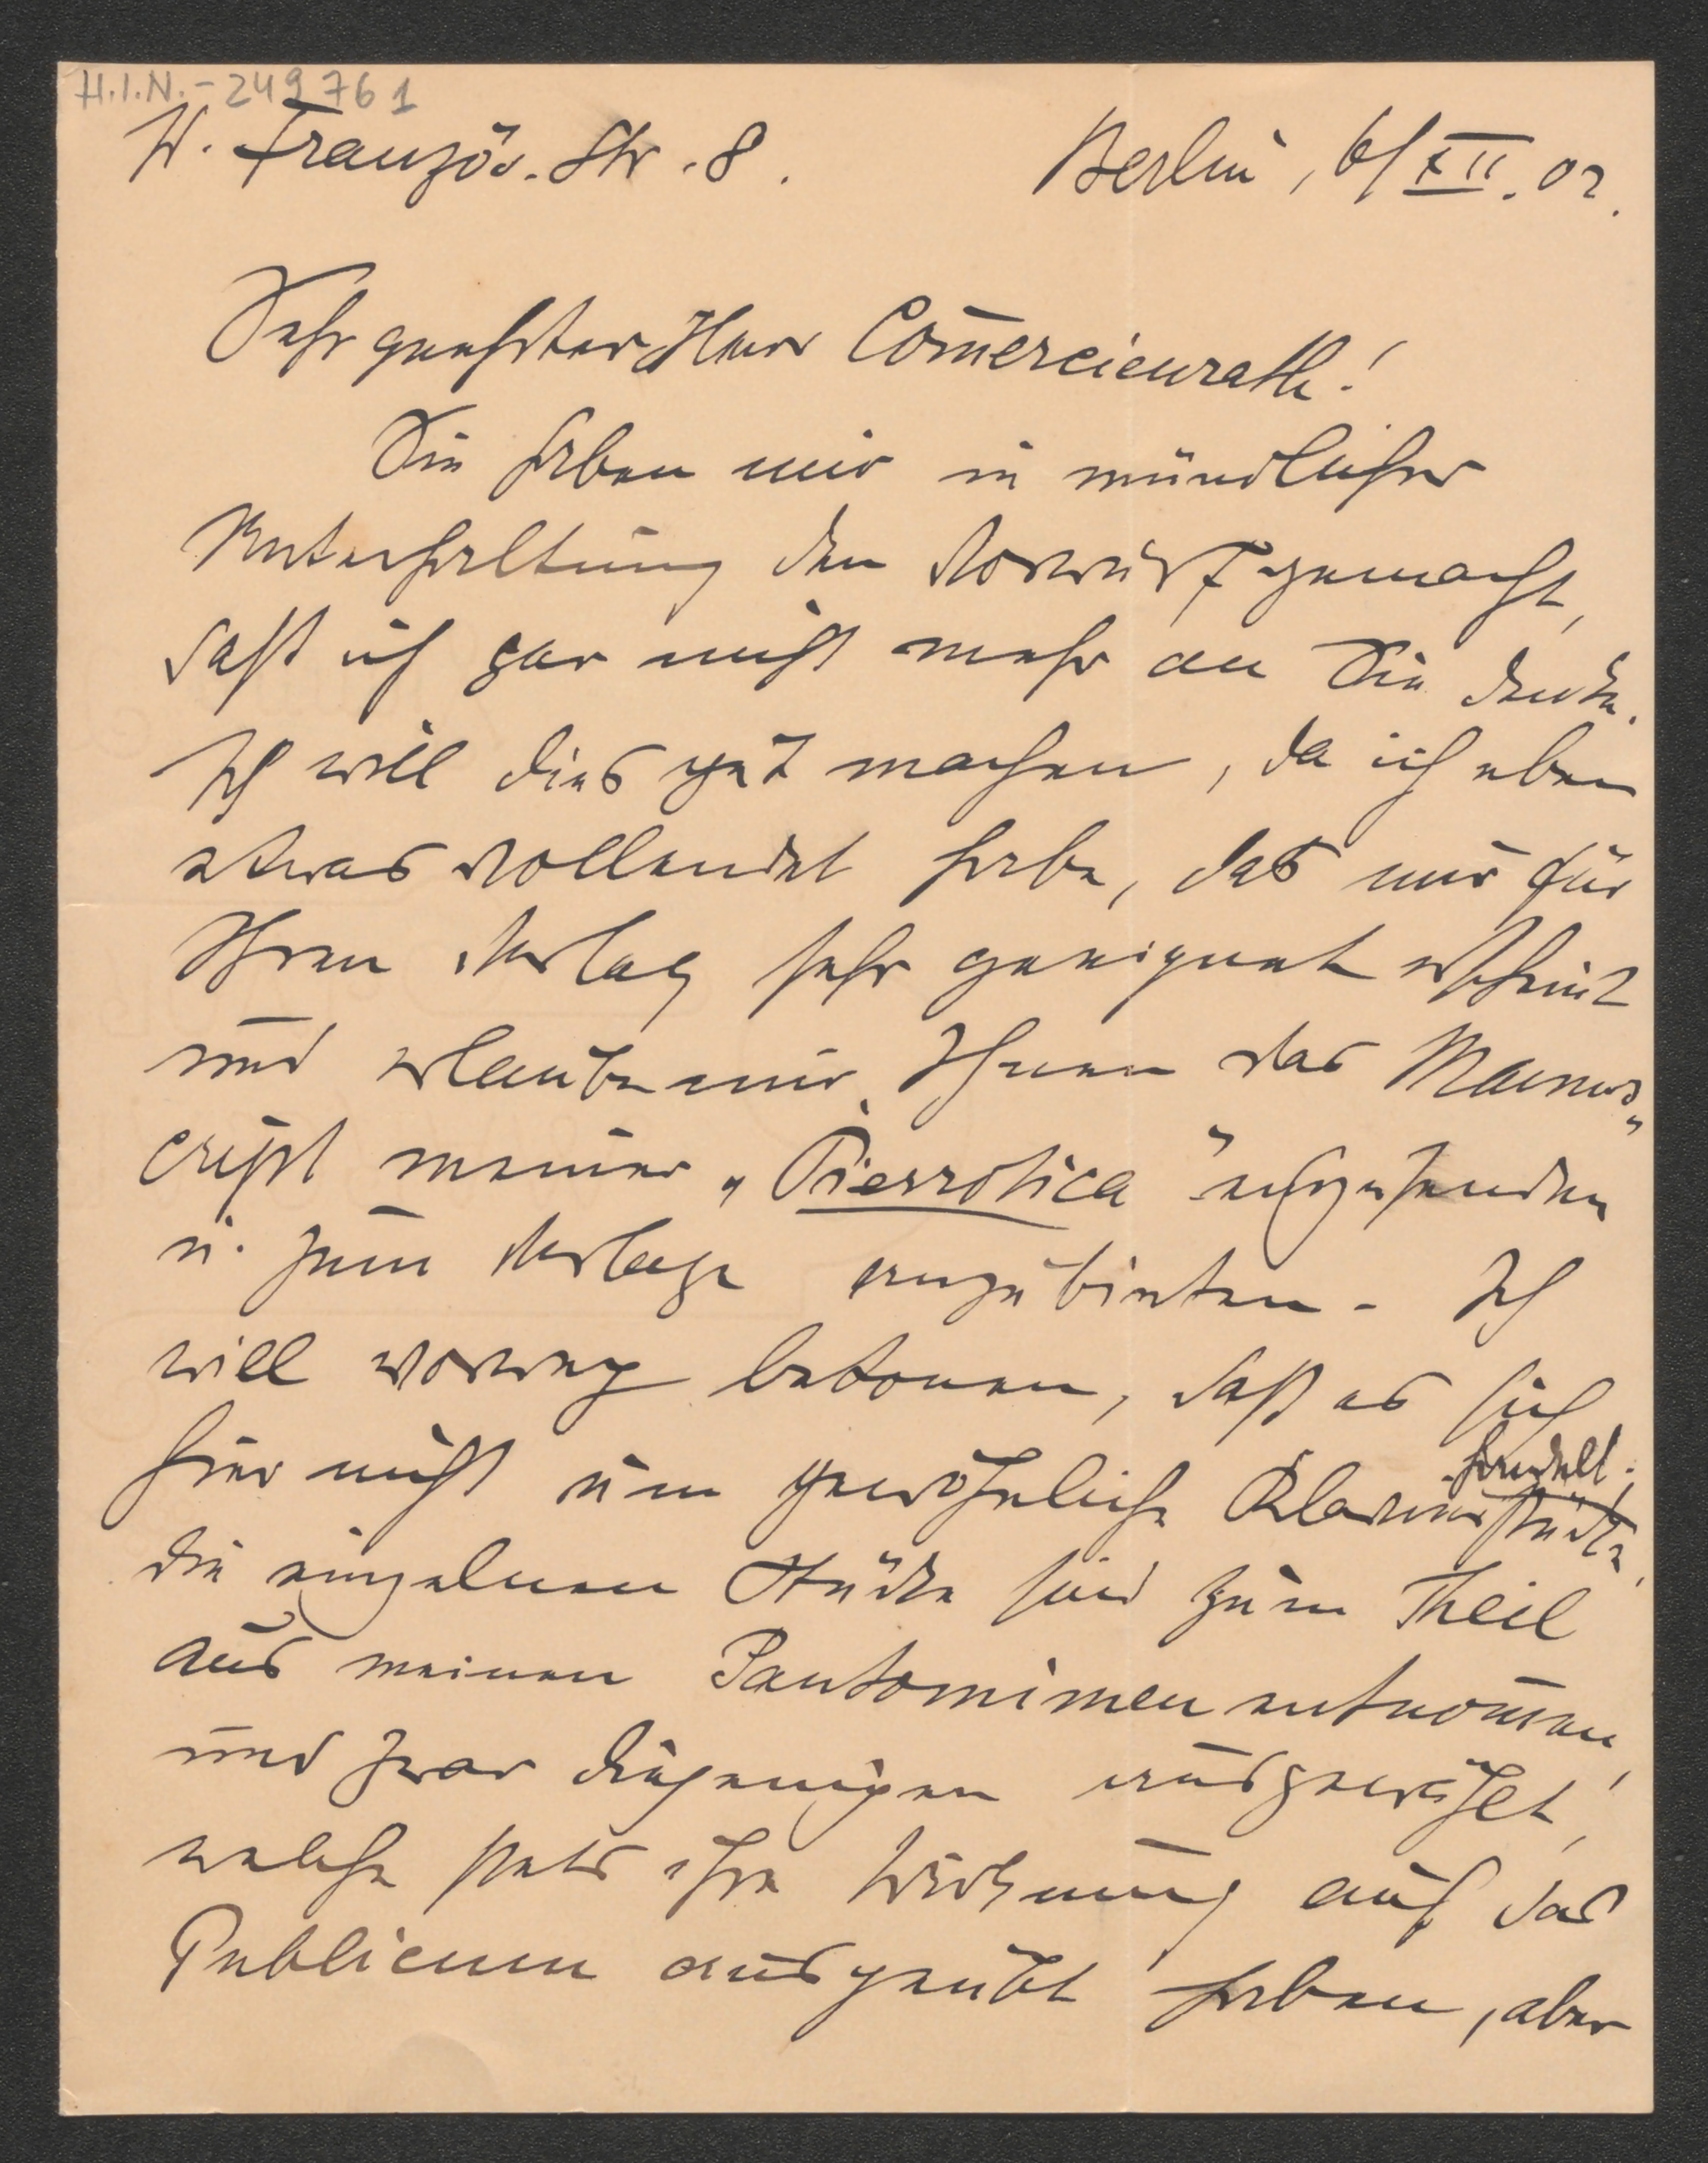 H.I.N.-249761
W. Französ. Str. 8.
Berlin, 6/XII. 02.
Sehr geehrter Herr Com̅ercienrath!
Sie haben mir in mündlicher
Unterhaltung den Vorwurf gemacht,
daß ich gar nicht mehr an Sie denke.
Ich will dies gut machen, da ich eben
etwas vollendet habe, das mir für
Ihren Verlag sehr geeignet erscheint
und erlaube mir, Ihnen das Manus„
cript meiner „Pierrotica" einzusenden
u. zum Verlage anzubieten. Ich
will vorweg betonen, daß es sich
hier nicht um gewöhnliche Klavierstücke
handelt;
die einzelnen Stücke sind zum Theil
aus meinen Pantomimen entnom̅en,
und zwar diejenigen ausgewählt,
welche stets ihre Wirkung auf das
Publicum ausgeübt haben, aber